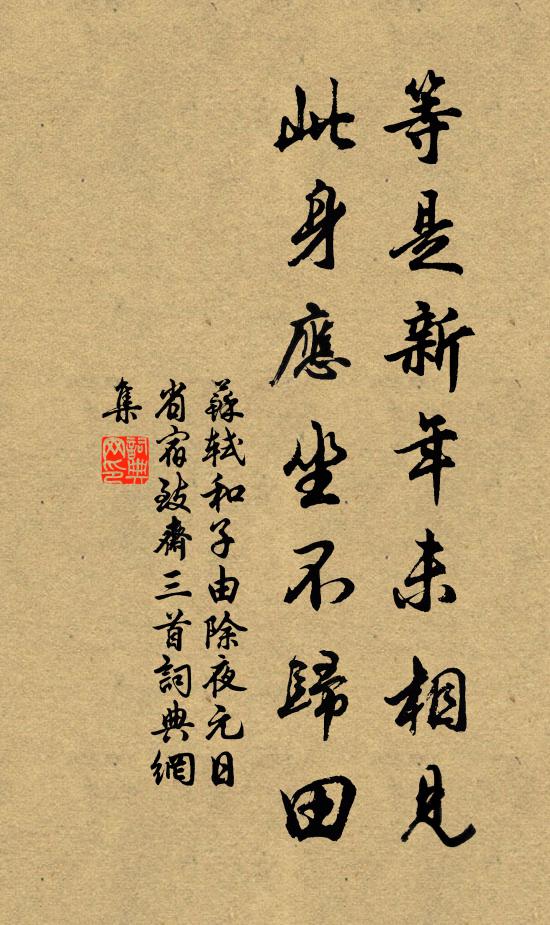 等是新年未相見
此身應坐不歸田
蘇軾和子由除夜元日
省宿致齋三首詞典網
集
詞典
网印